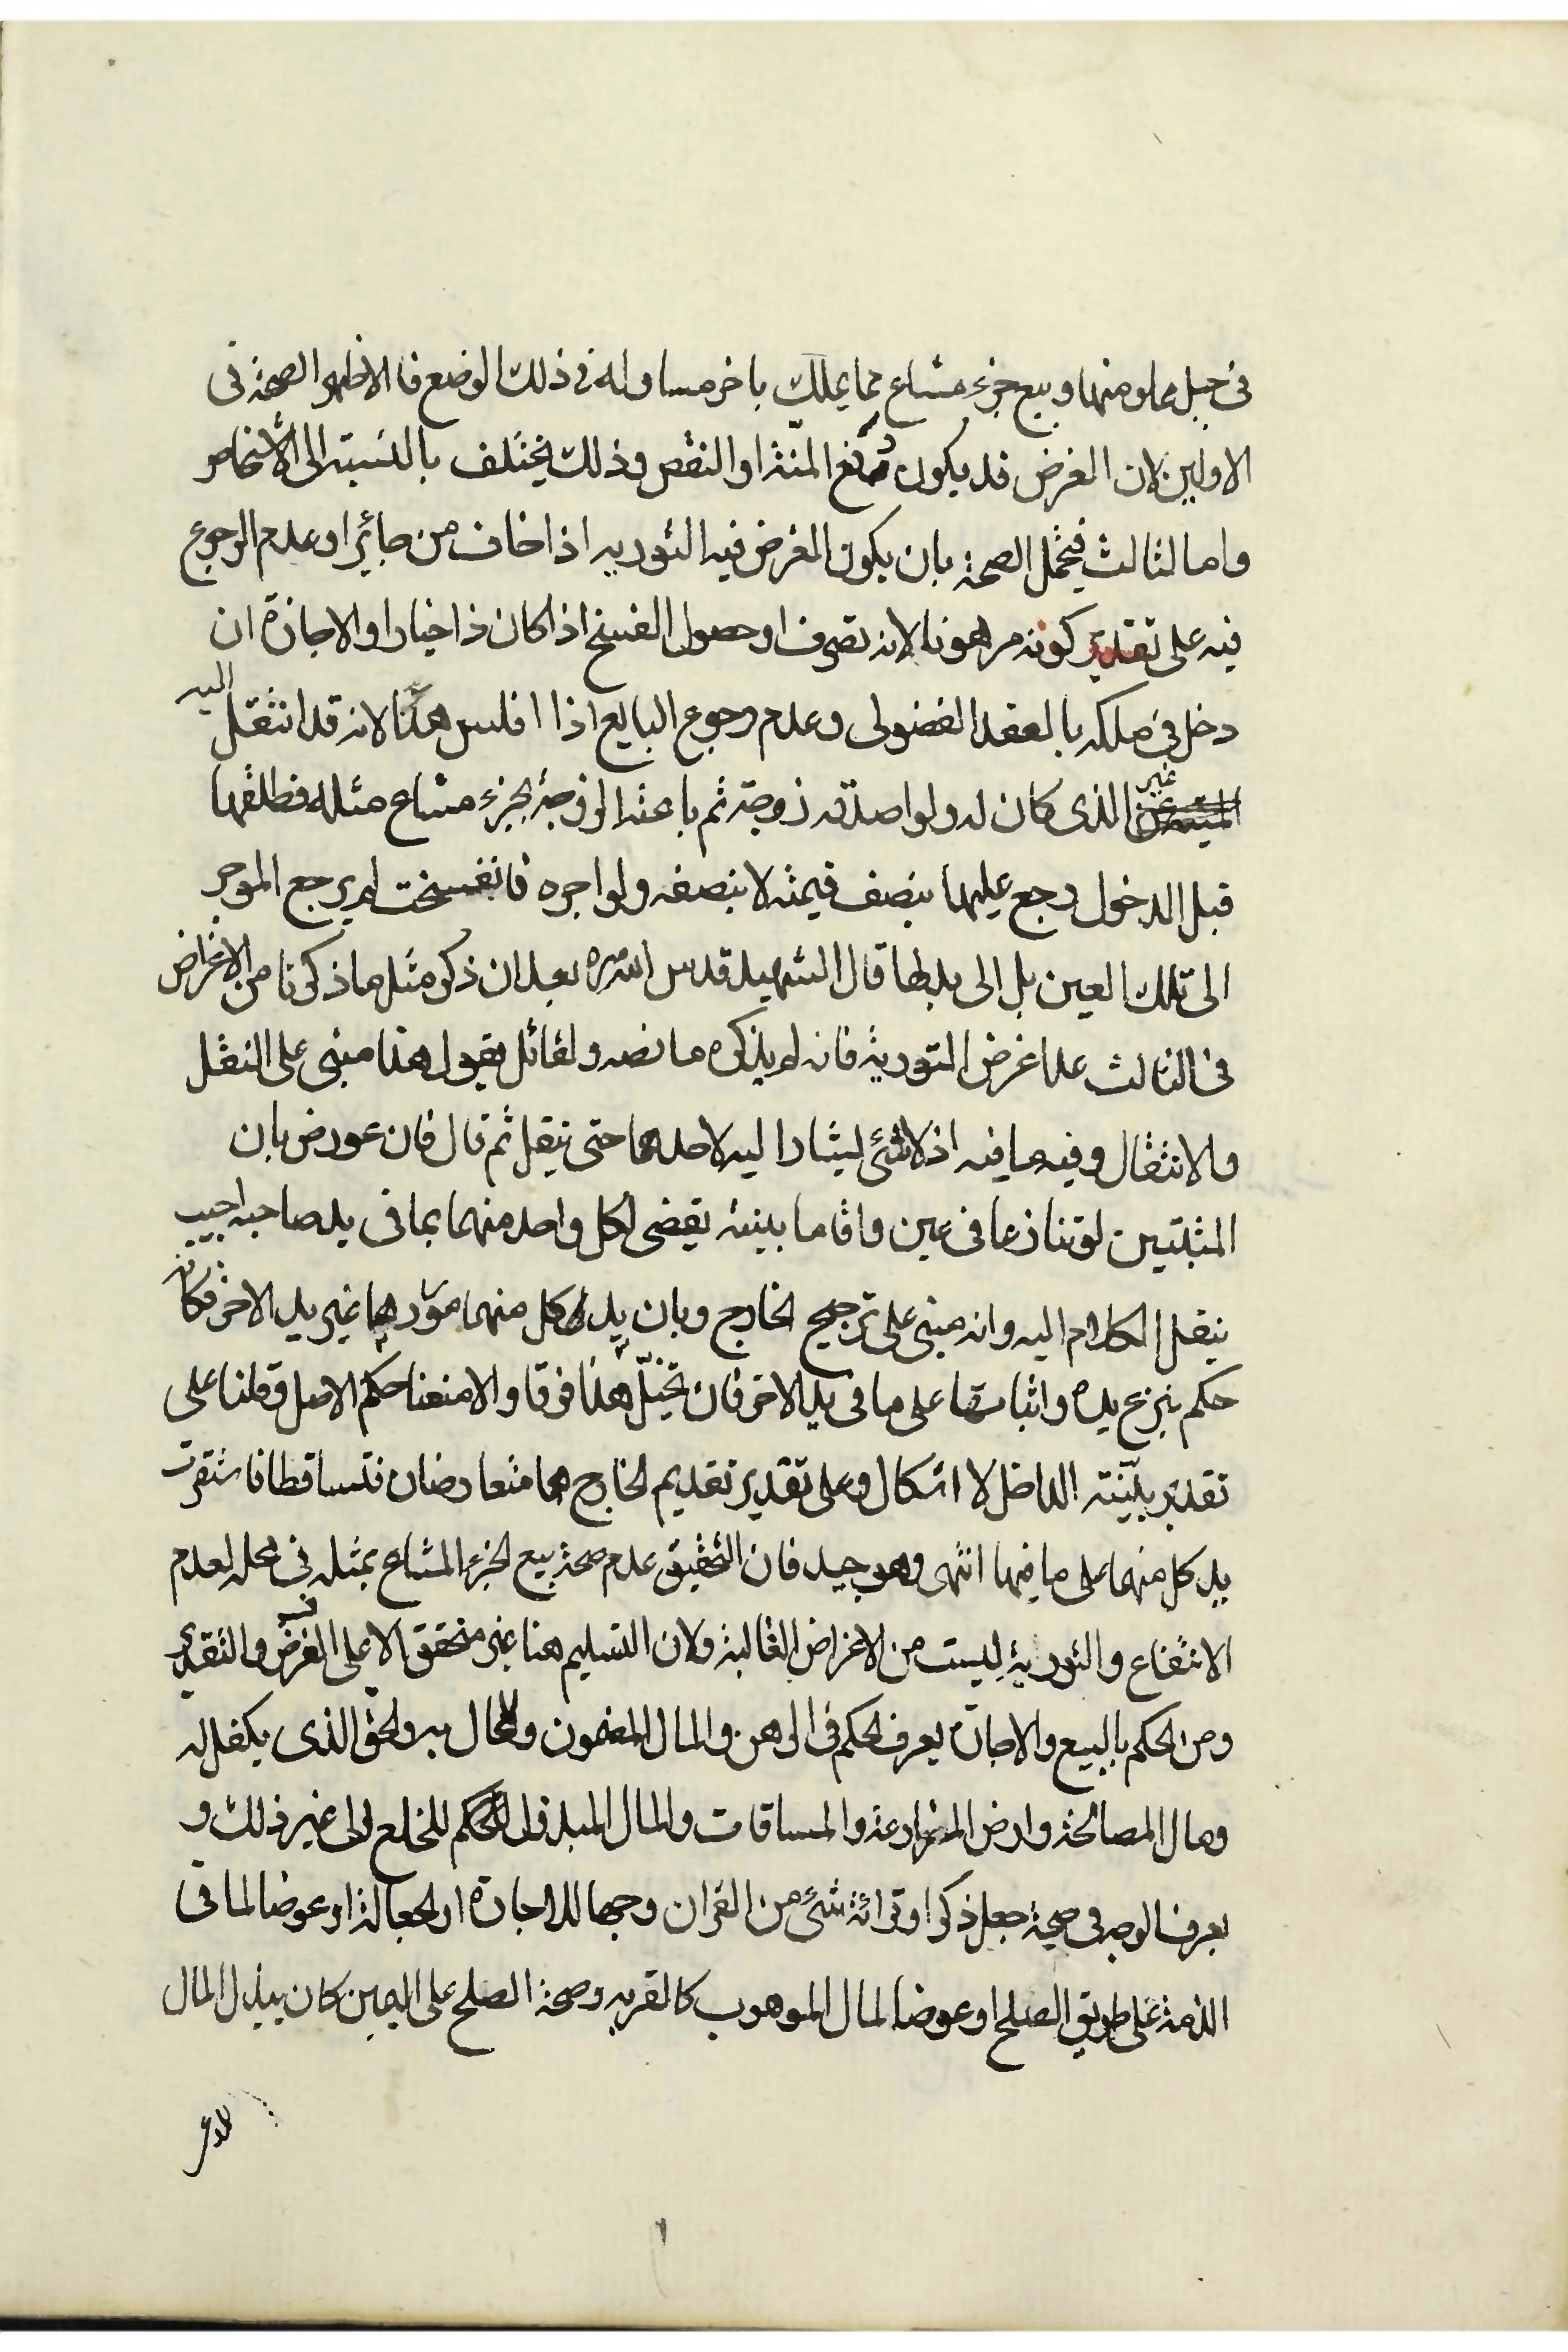 في جبل مملو منهما وبيع جزء مشاع مما يملك باخر مساو له في ذلك الوضع فالاظهر الصحة في
الاولين لان الغرض قد يكون دفع المنة او النقص وذلك يختلف بالنسبة الى الأشخاص
واما الثالث فيحتمل الصحة بان يكون الغرض فيه التوريه اذا خاف من جائر او عدم الرجوع
فيه على تقدير كونه مرهونا لانه تصرف او حصول الفسخ اذا كان ذا خيار او الاجازة ان
دخل في ملكه بالعقد الفضولى وعدم رجوع البايع اذا افلس هذا لانه قد انتقل اليه
غير الذى كان له ولو اصدقه زوجة ثم باعته الزوجة بجزء مشاع مثله فطلقها
قبل الدخول رجع عليها بنصف قيمته لا بنصفه ولو اجره فانفسخت لم يرجع الموجر
الى تلك العين بل الى بدلها قال الشهيد قدس الله سره بعد ان ذكر مثل ما ذكرنا من الاغراض
في الثالث عدا غرض التورية فانه لم يذكره ما نصه ولقائل يقول هذا مبنى على النقل
والانتقال وفيه ما فيه اذ لا شئ يشار اليه لاحدهما حتى ينقل ثم قال فان عورض بان
المثبتين لو تنازعا في عين واقاما بينة يقضى لكل واحد منهما بما في يد صاحبه اجيب
بنقل الكلام اليه وانه مبنى على ترجيح الخارج وبان يد كل منهما موردها غير يد الاخر فكانه
حكم بنزع يده واثباتها على ما في يد الاخر فان تخيل هذا فرقا والا منعنا حكم الاصل وقلنا على
تقدير بينة الداخل لا اشكال وعلى تقدير تقديم الخارج هما متعارضان فتساقطا فاستقرت
يد كل منهما على ما فيها انتهى وهو جيد فان التحقيق عدم صحة بيع الجزء المشاع بمثله في محله لعدم
الانتفاع والتورية ليست من الاغراض الغالبة ولان التسليم هنا غير متحقق الا على الفرض والتقدير
ومن الحكم بالبيع والاجارة يعرف الحكم في الرهن والمال المضمون والمحال به والحق الذى يكفل له
ومال المصالحة وارض المزارعة والمساقات والمال المبذول للخلع الى غير ذلك و
يعرف الوجه في صحة جعل ذكر او قرائة شئ من القران وجها للاجارة او الجعالة او عوضا لما في
الذمة على طريق الصلح او عوضا لمال الموهوب كالقربه وصحة الصلح على اليمين كان يبذل المال